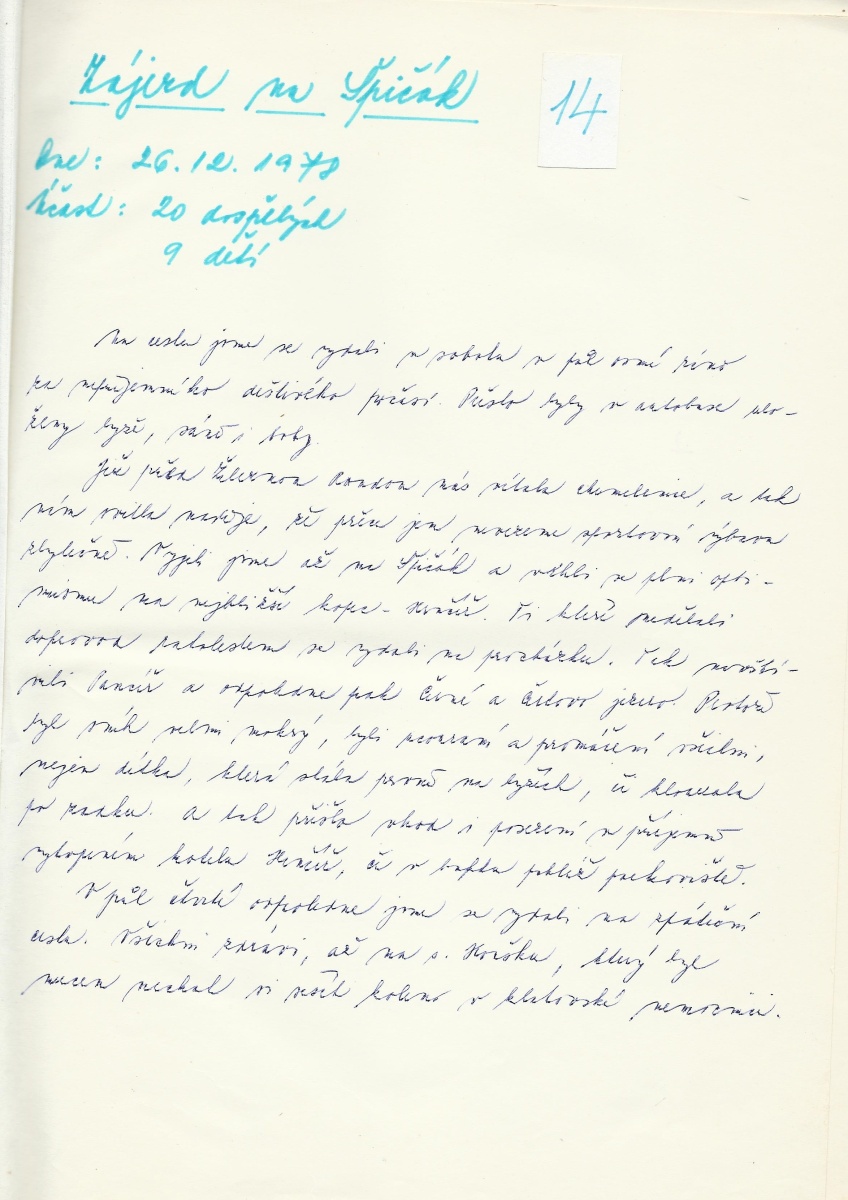 Zájezd na Špičák
14
Dne: 26.12.1978
Účast: 20 dospělých
9 dětí
Na cestu jsme se vydali v sobotu v půl osmé ráno
za nepříjemného deštivého počasí. Přesto byly v autobuse ulo-
ženy lyže, sáně i boby.
Již před Železnou Rudou nás vítala chumelenice, a tak
nám svitla naděje, že přece jen nevezeme sportovní výbavu
zbytečně. Vyjeli jsme až na Špičák a vtrhli se plni opti-
mismu na nejbližší kopec - Hančíř. Ti kteří nedělali
doprovod ratolestem se vydali na procházku. Tak navští-
vili Pancíř a odpoledne pak Černé a Čertovo jezero. Protože
byl sníh velmi mokrý, byli urousaní a promáčení všichni,
nejen dítka, která stála prvně na lyžích, či klouzala
po zadku. A tak přišlo vhod i posezení v příjemně
vytopeném hotelu Hančíř, či v bufetu poblíž parkoviště.
V půl čtvrté odpoledne jsme se vydali na zpáteční
cestu. Všichni zdrávi, až na s. Horšku, který byl
nucen nechat si sešít koleno v klatovské nemocnici.